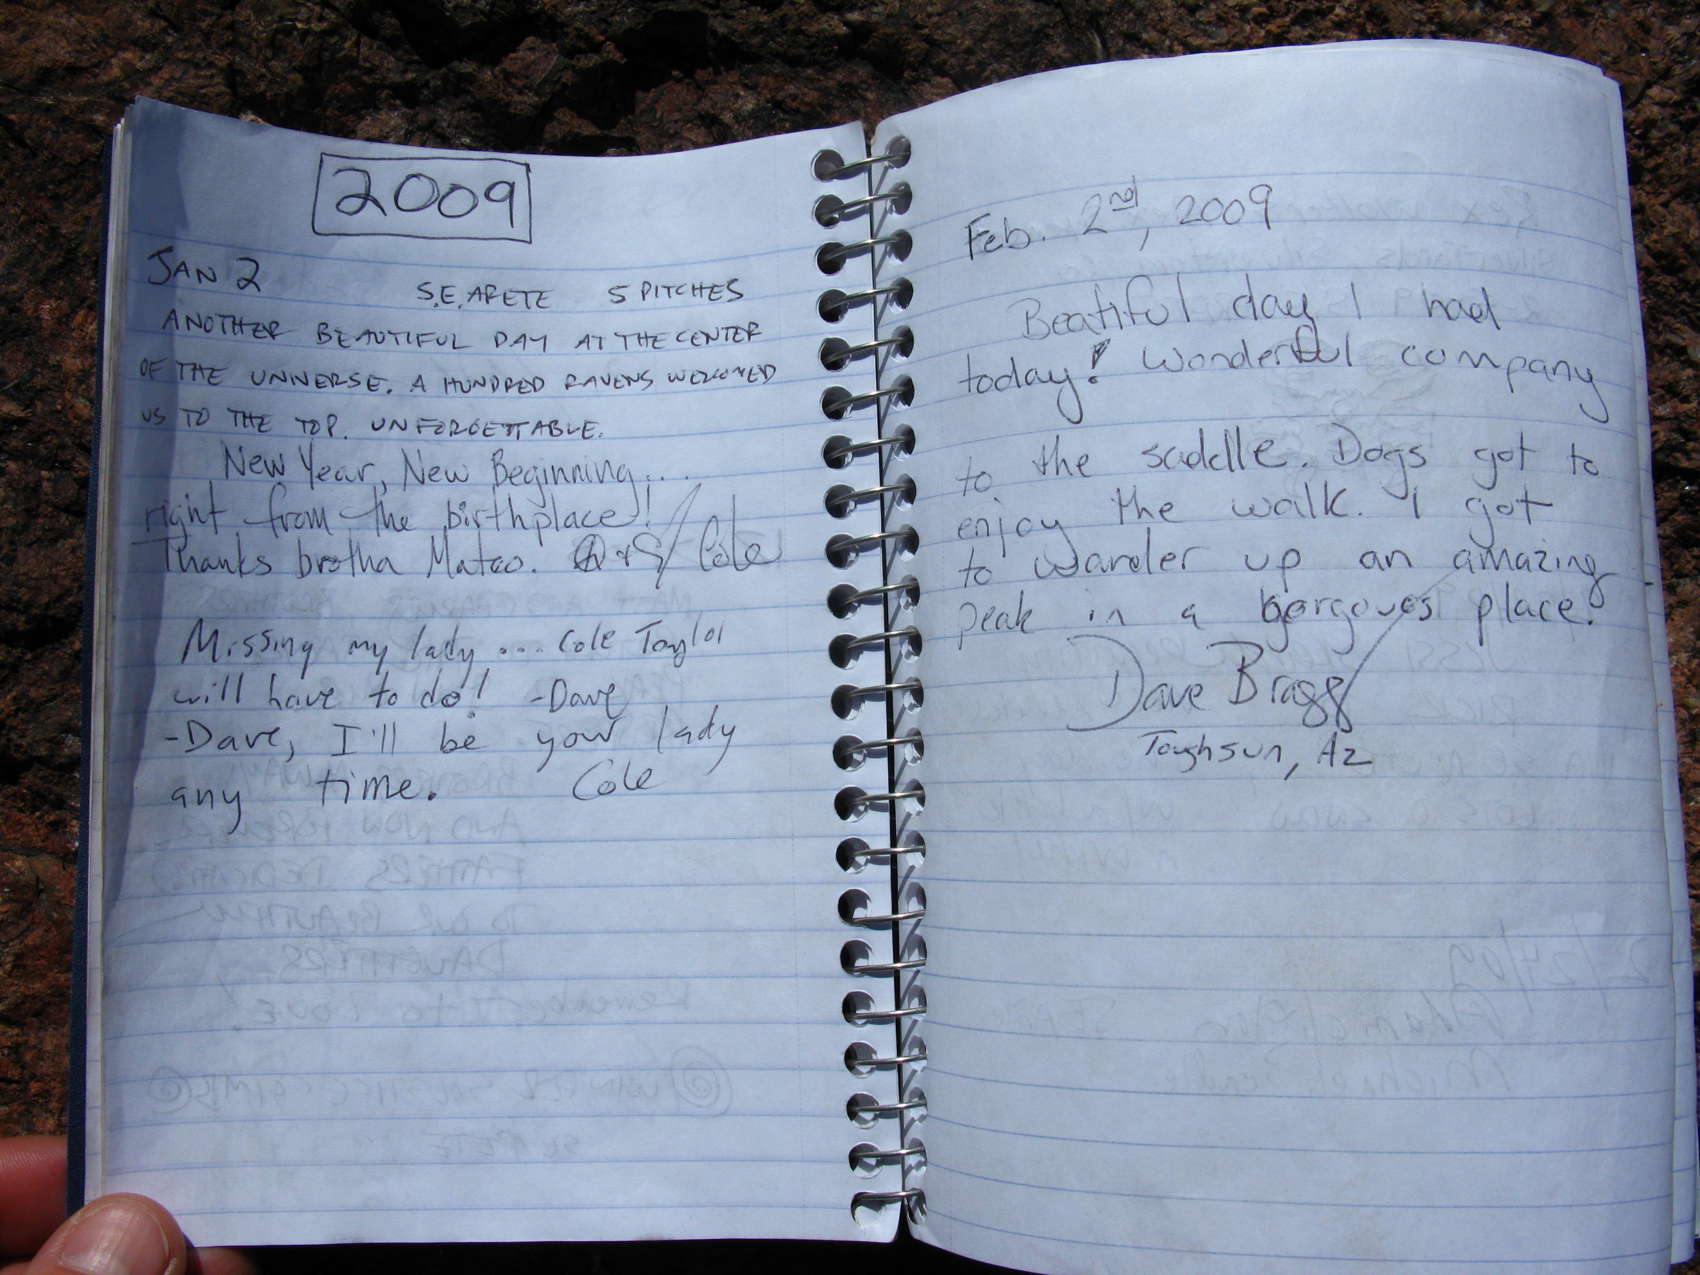 2009
JAN 2
S.E. ARETE 5 PITCHES
ANOTHER BEAUTIFUL DAY AT THE CENTER
OF THE UNIVERSE. A HUNDRED RAVENS WELCOMED
US TO THE TOP. UNFORGETTABLE.
New Year, New Beginning...
right from the birthplace!
Thanks brotha Mateo. Cole
Missing my lady... Cole Taylor
will have to do! -Dave
-Dave, I'll be your lady
any time. Cole
Feb. 2nd, 2009
Beatiful day I had
today! Wonderful company
to the saddle. Dogs got to
enjoy the walk. I got
to wander up an amazing
peak in a gorgoues place.
Dave Bragg
AZ